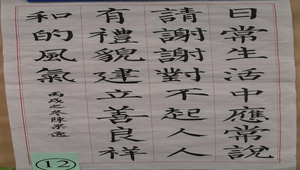 日常生活中應常說
請謝謝對不起人人
有禮貌建立善良祥
和的風氣
丙戌之冬陳
12